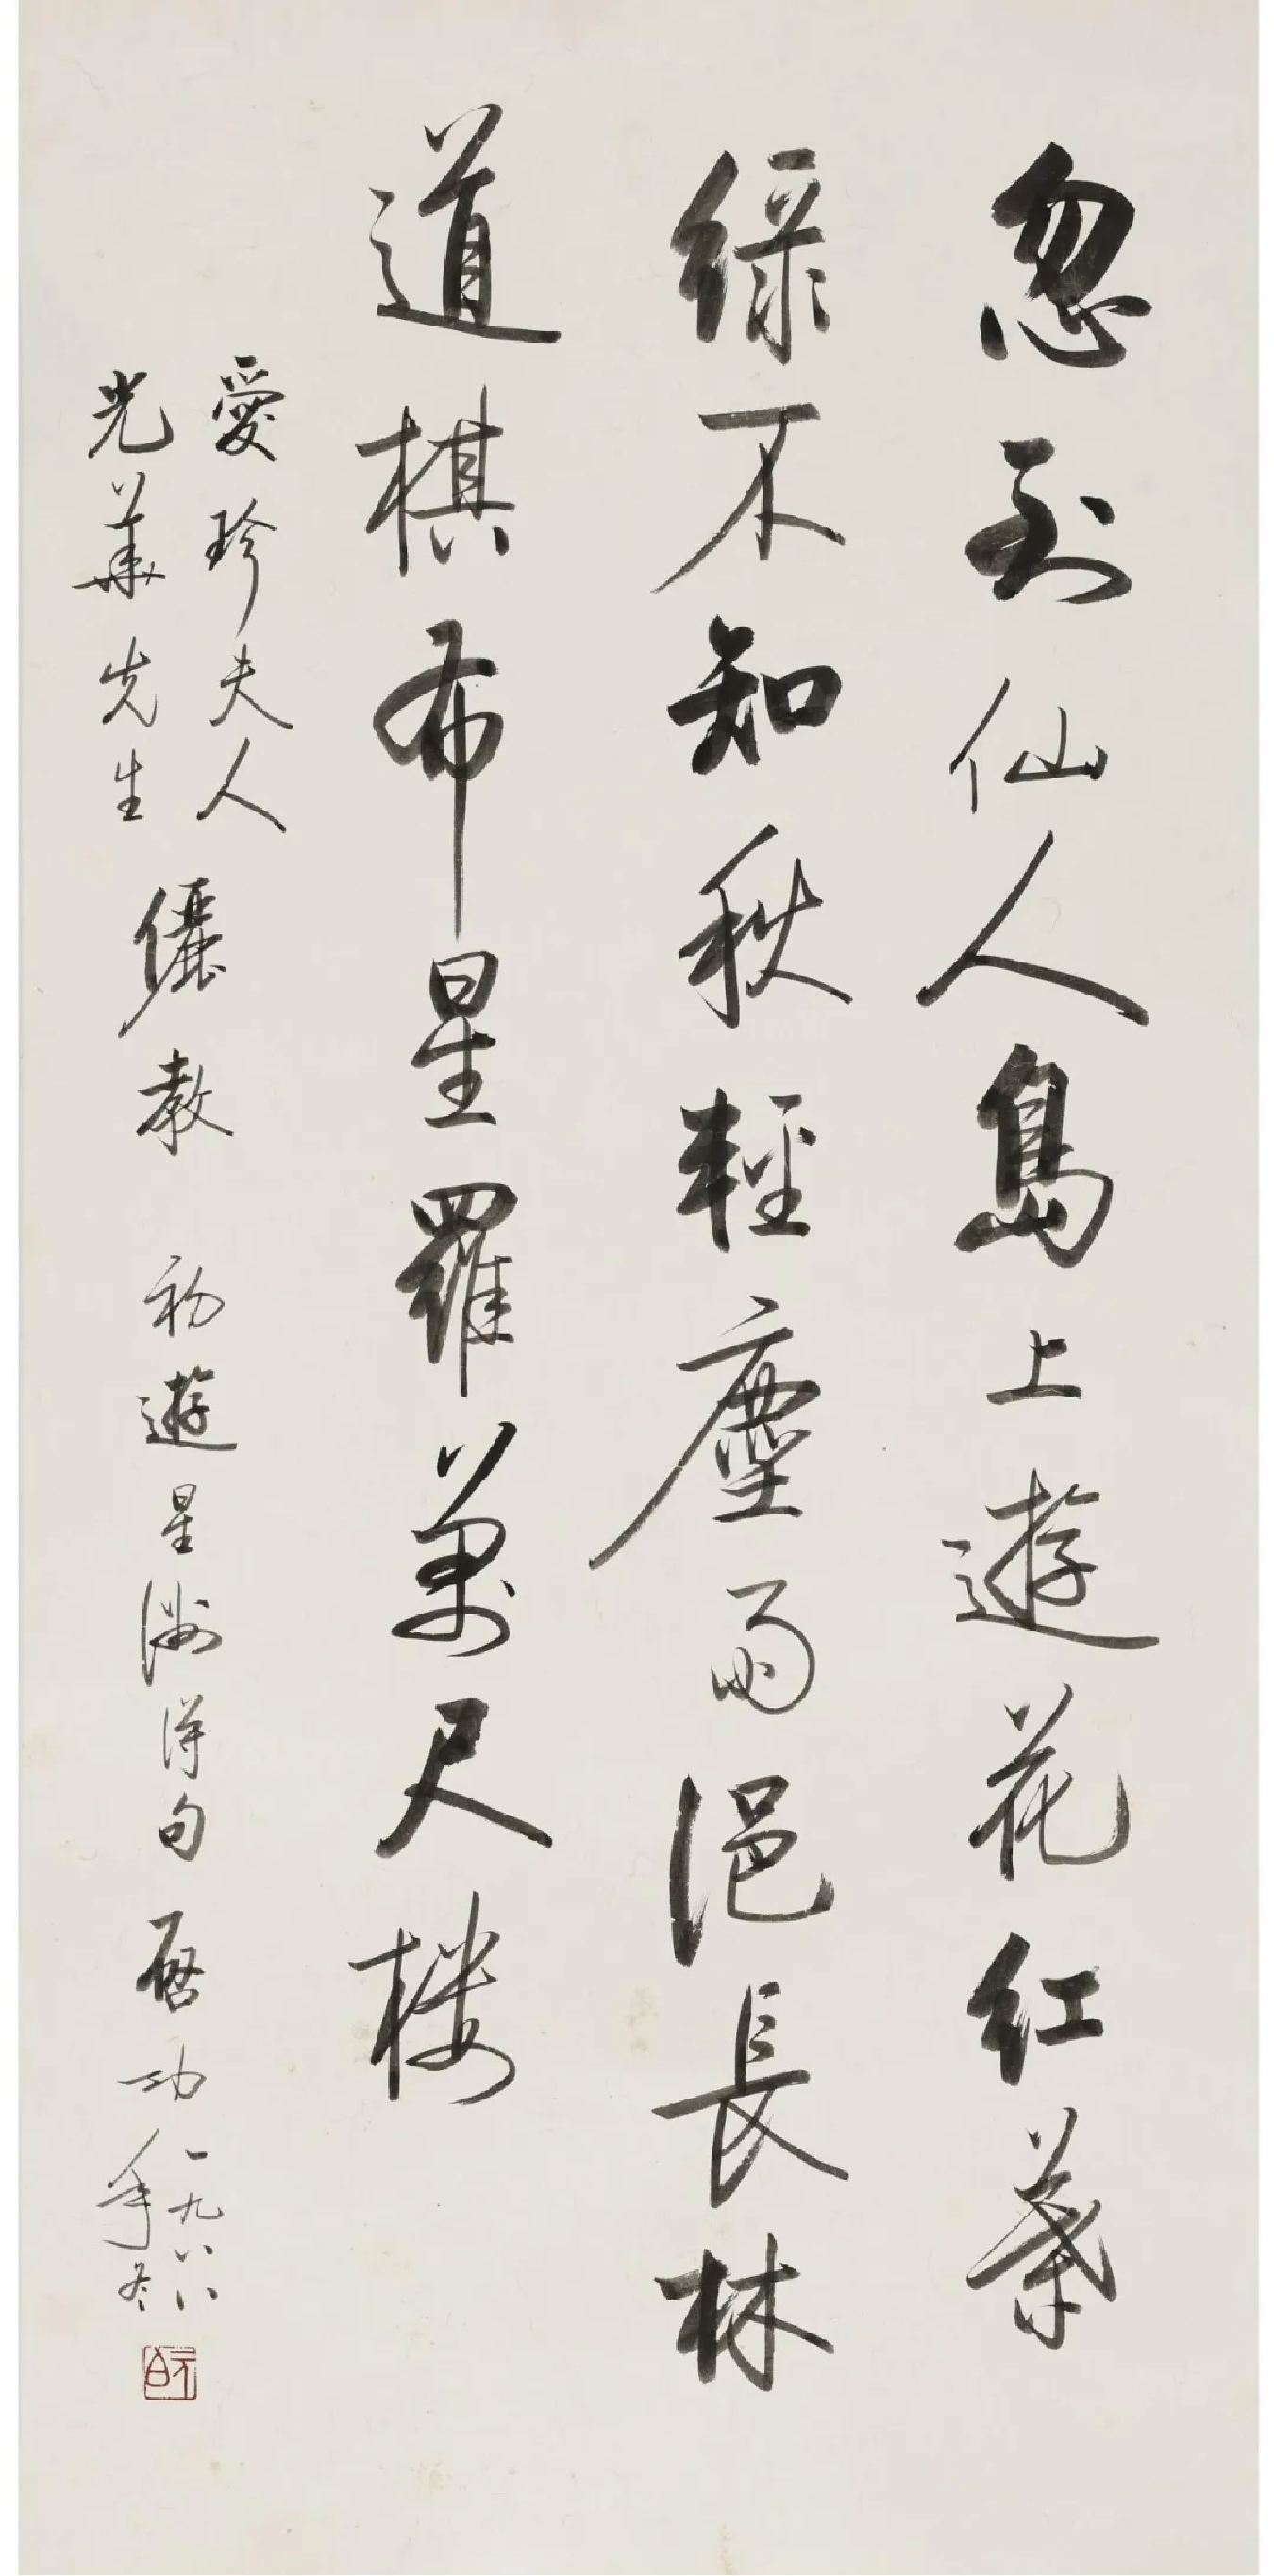 忽到仙人島上遊花紅葉
綠不知秋輕塵雨浥長林
道棋布星羅萬尺楼
愛珍夫人
光華先生
儷教 初遊星洲得句 啓功
一九八八
年冬
啓